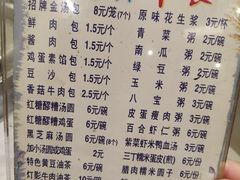 招牌金汤包 8元/笼(7个)
鲜肉包 1.5元/个
酱肉包 1.5元/个
鸡蛋素馅包 1.5元/个
豆沙包 1.5元/个
香菇牛肉包 2.5元/个
红糖醪糟汤圆 6元/碗
红糖醪糟鸡蛋 6元/碗
黑芝麻汤圆 6元/碗
加小汤圆或鸡蛋 2元
特色黄豆油茶 6元/碗
灯影牛肉油茶
原味花生浆 3元/杯
青菜粥 2元/碗
南瓜粥 2元/碗
玉米粥 2元/碗
绿豆粥 2元/碗
八宝粥 2元/碗
皮蛋瘦肉粥 3元/碗
百合虾仁粥 6元/碗
紫菜虾米鸭血汤 3元/碗
三丁糯米蛋皮(煎) 6元/份
腊肉糯米圆子 6元/份